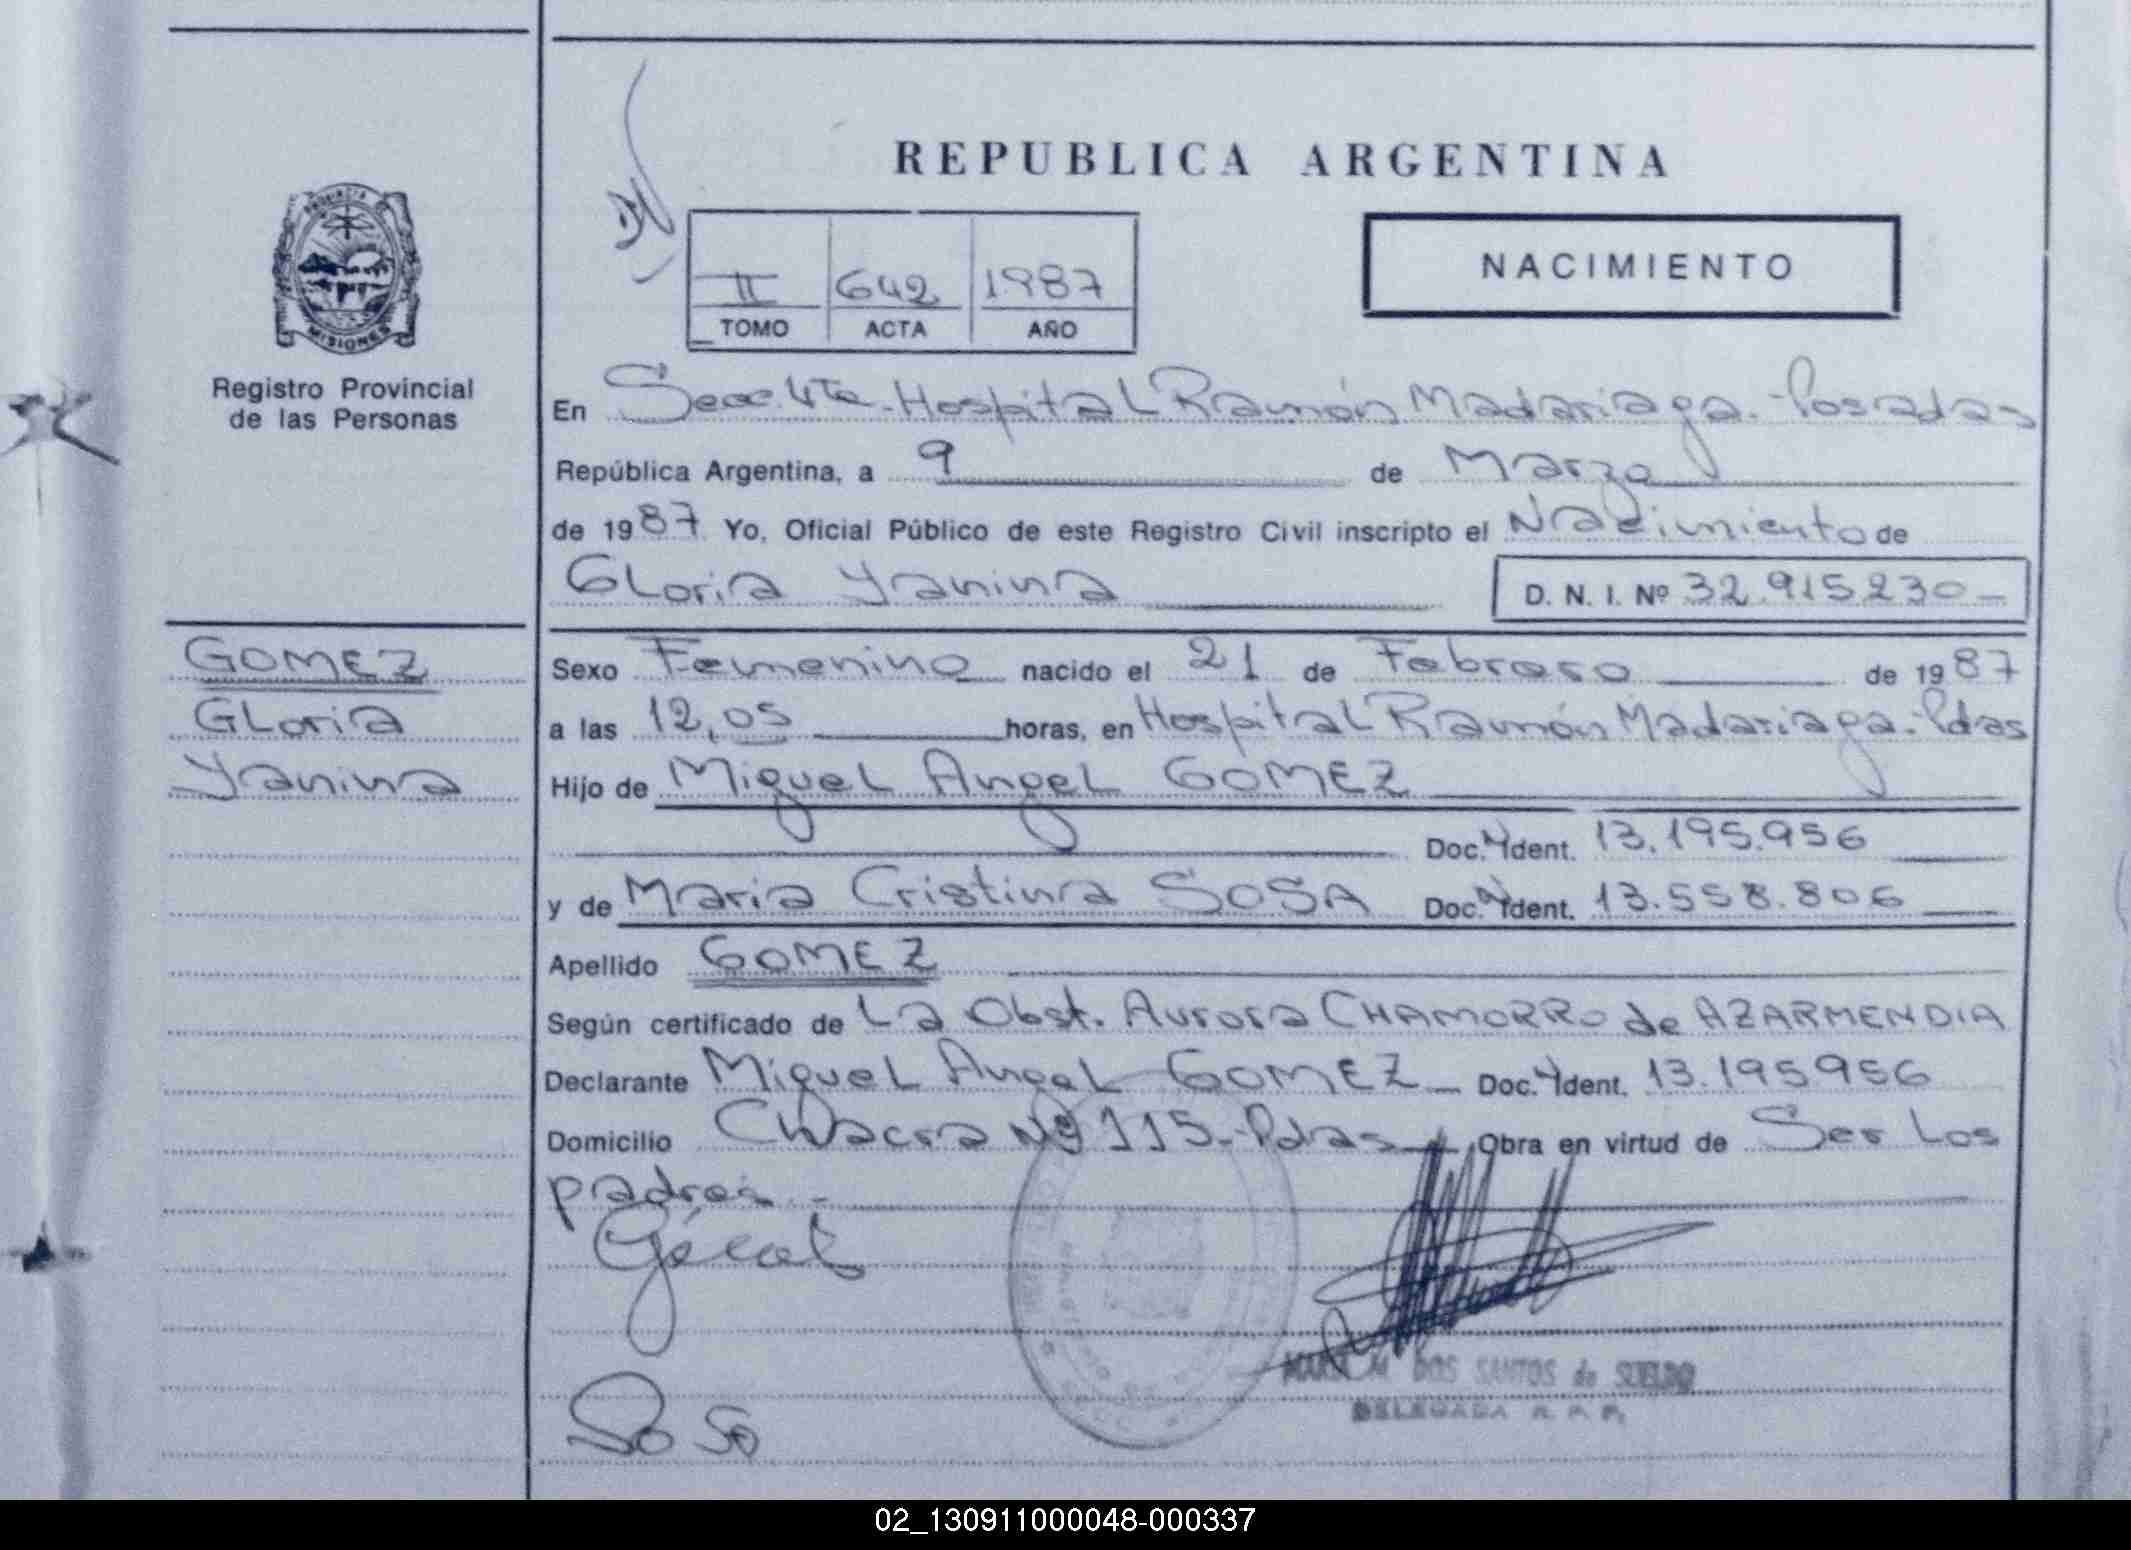 REPUBLICA ARGENTINA
NACIMIENTO
II 642 1987
TOMO ACTA AÑO
PROVINCIA
MISIONES
Registro Provincial
de las Personas
GOMEZ
Gloria
Yanina
En Secc. 4ta. Hospital Ramón Madariaga.-Posadas
República Argentina, a 9 de Marzo
de 1987 Yo, Oficial Público de este Registro Civil inscripto el Nacimiento de
Gloria Yanina D. N. I. Nº 32.915.230-
Sexo Femenino nacido el 21 de Febrero de 1987
a las 12,05 horas, en Hospital Ramón Madariaga.-Pdas
Hijo de Miguel Angel GOMEZ
Doc. Ydent. 13.195.956
y de Maria Cristina SOSA Doc. Ydent. 13.558.806
Apellido GOMEZ
Según certificado de La Obst. Aurora CHAMORRO de AZARMENDIA
Declarante Miguel Angel GOMEZ Doc. Ydent. 13.195956
Domicilio Chacra Nº 115.-Pdas Obra en virtud de Ser Los
padres.-
Soso
MARIA M DOS SANTOS de SUELDO
DELEGADA R. P. P.
02_130911000048-000337